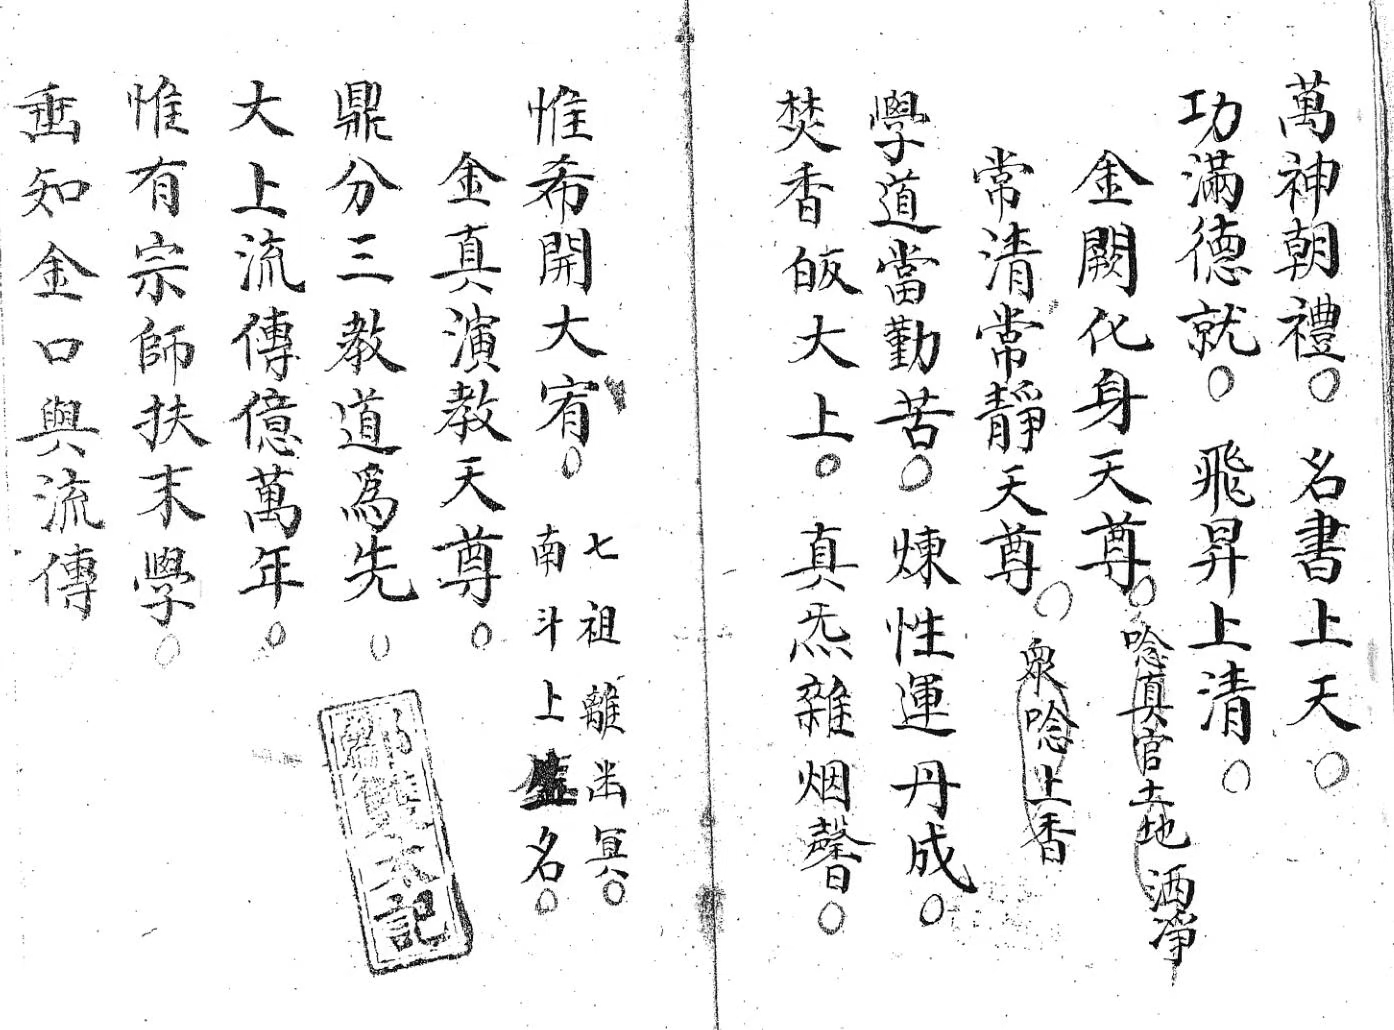 萬神朝禮○名書上天○
功滿德就○飛昇上清○
金闕化身天尊○唸真官土地洒淨
常清常靜天尊○衆唸上香
學道當勤苦○煉性運丹成○
焚香皈大上○真炁雜烟馨○
惟希開大宥○七祖離出冥○
南斗上名○
金真演教天尊○
鼎分三教道爲先○
大上流傳億萬年○
惟有宗師扶末學○
畨知金口與流傳
記